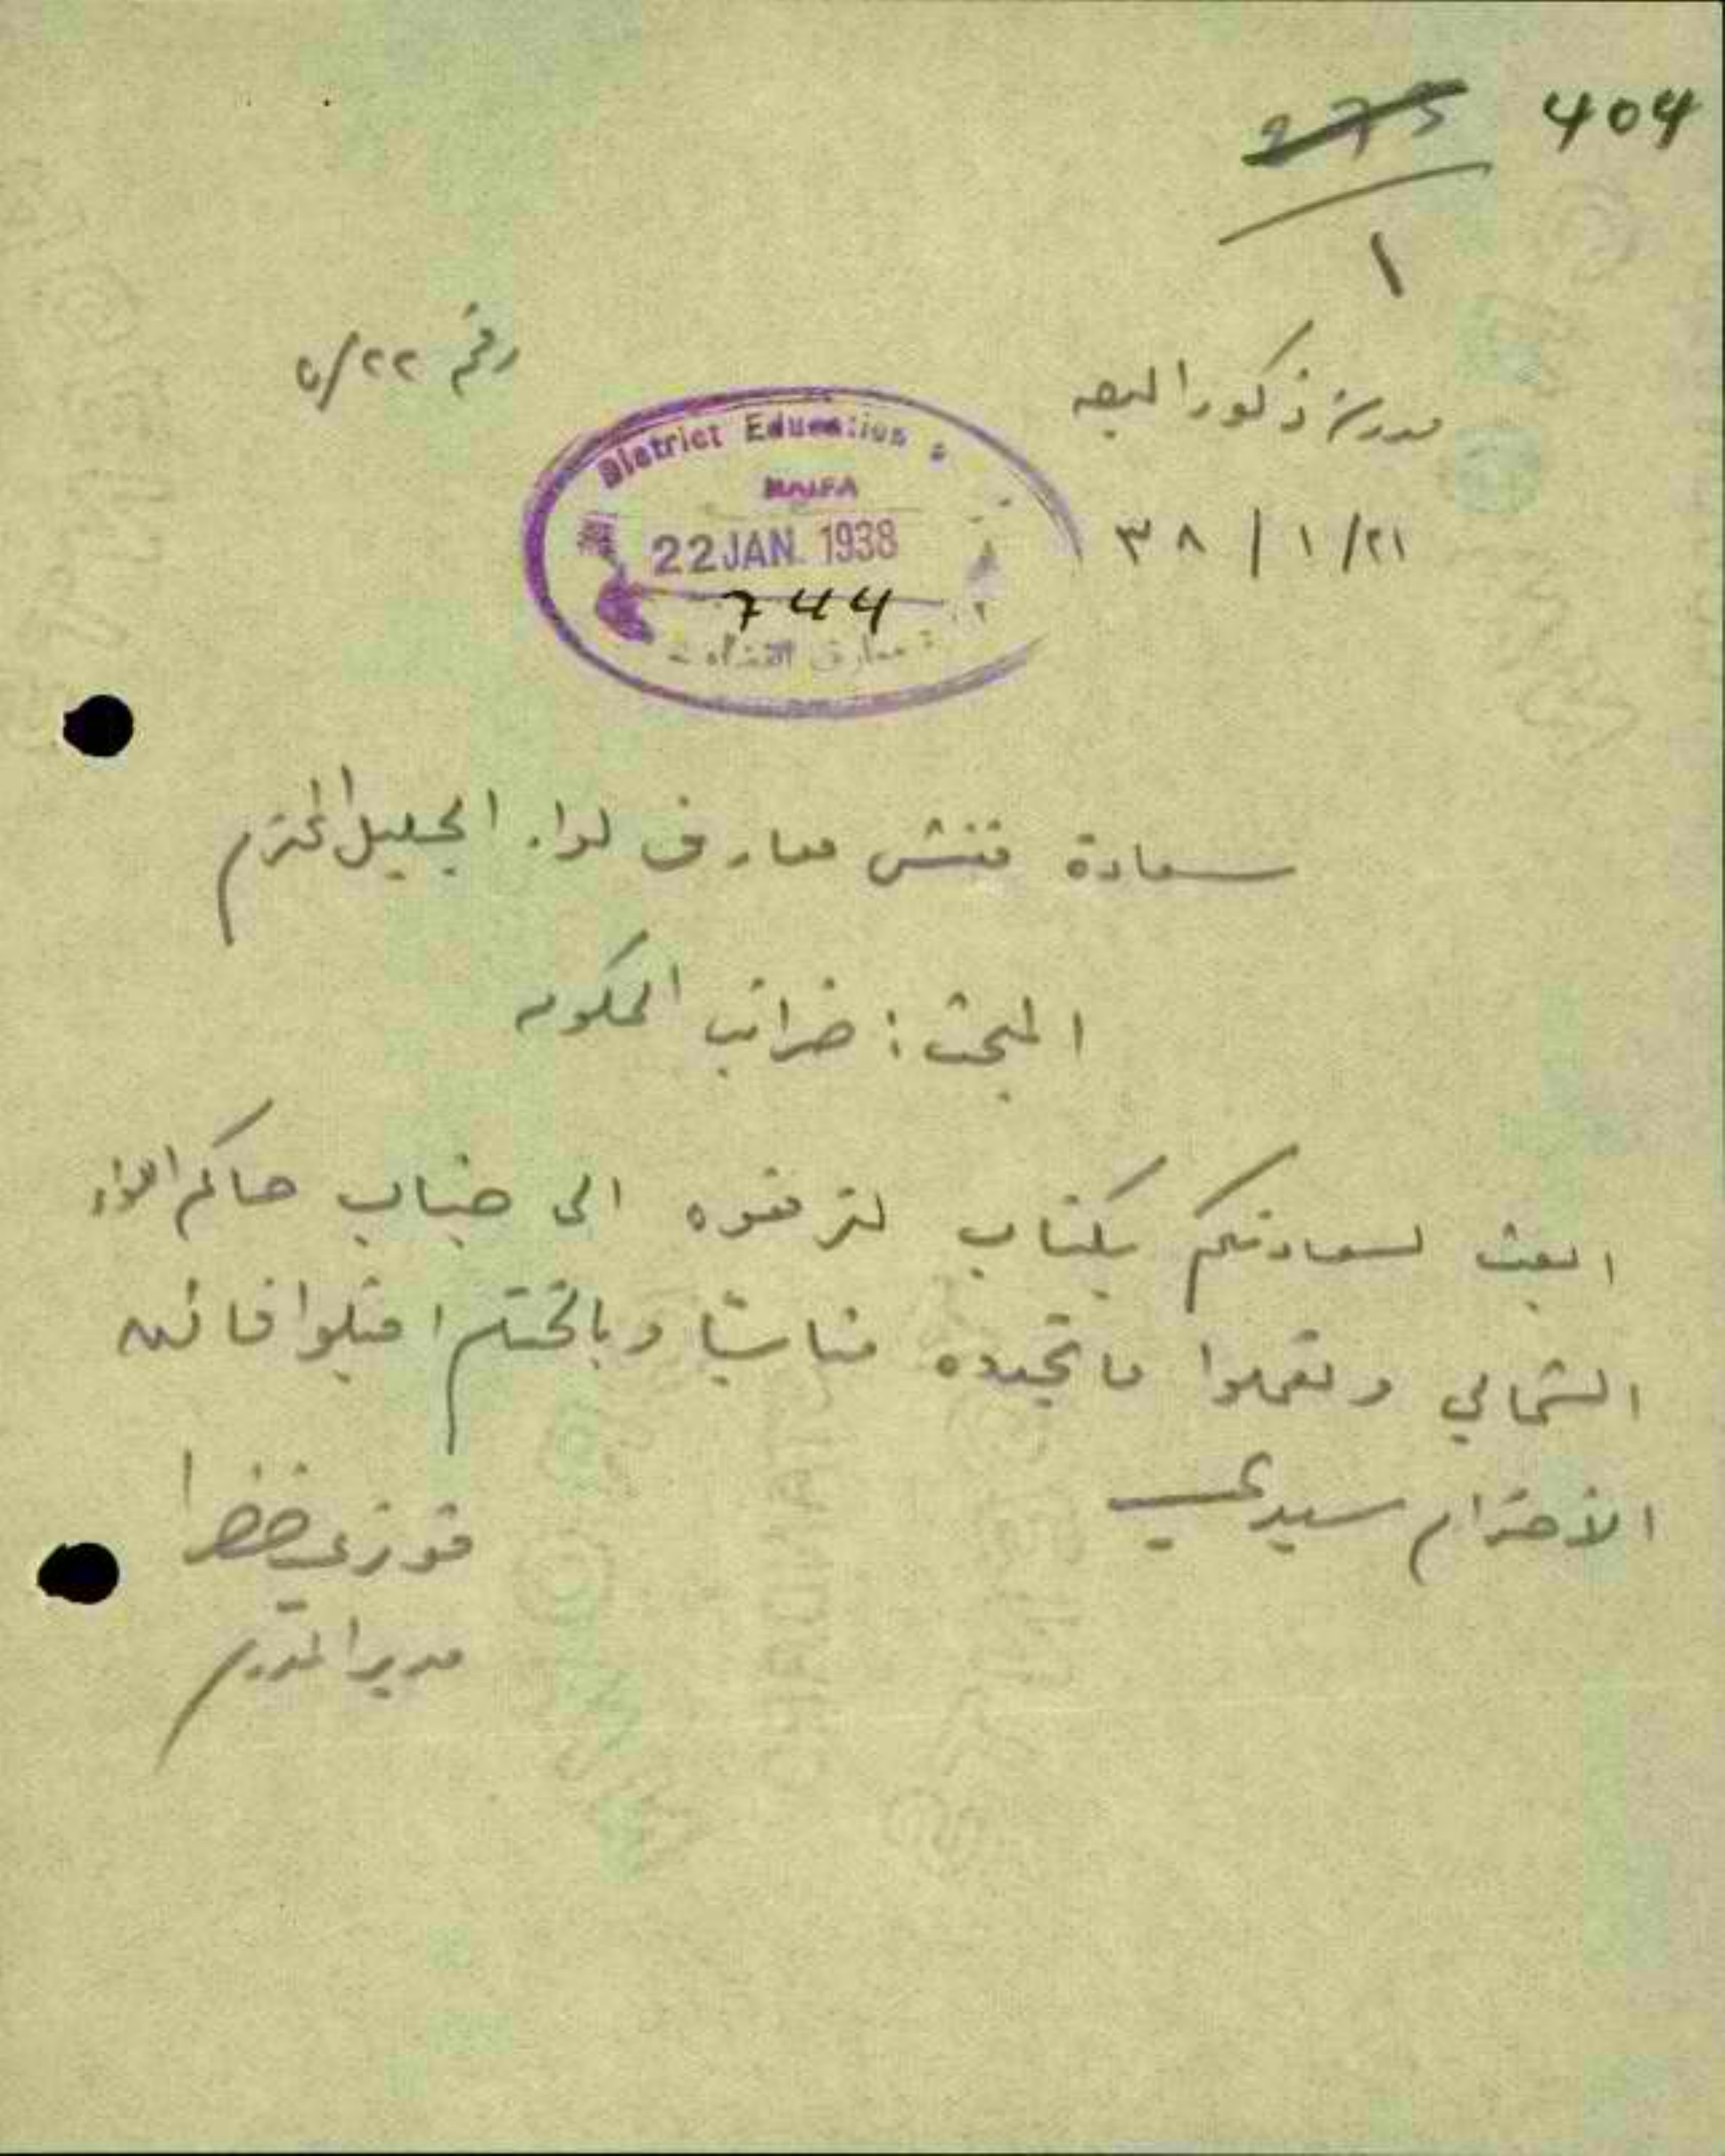 404
275
١
مدرسة ذكور البصه
رقم ٥/٢٢
٢١/ ١ / ٣٨
District Education
HAIFA
22 JAN. 1938
744
معارف
سعادة مفتش معارف لواء الجليل المحترم
المبحث : ضرائب الحكومه
ابعث لسعادتكم بكتاب لترفعوه الى جناب حاكم اللواء
الشمالي وتعملوا ما تجدوه مناسبًا وبالختام اقبلوا فائق
الاحترام سيدي
فوزي خضرا
مدير المدرسة